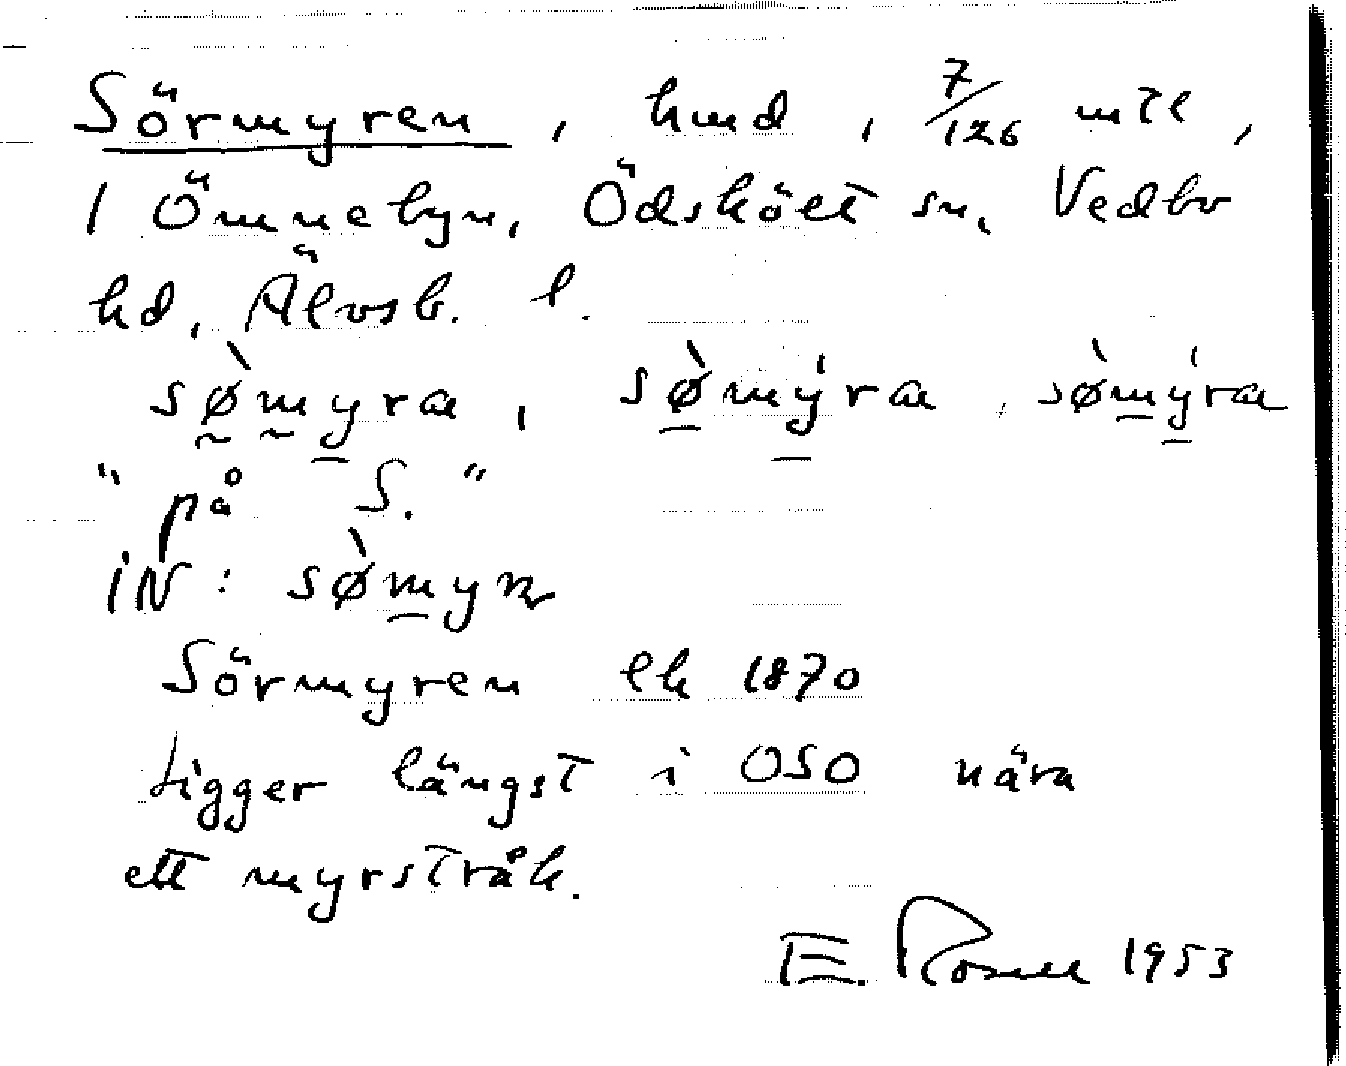 Sörmyren, hmd, 7/126 mtl,
i Ömnebyn, Ödskölt sn, Vedbo
hd, Älvsb. l.
sø̀myra, sø̀mýra, sø̀mýra
"på S."
iN: sø̀myr
Sörmyren ek 1870
Ligger längst i OSO nära
ett myrstråk.
E. Rosell 1953